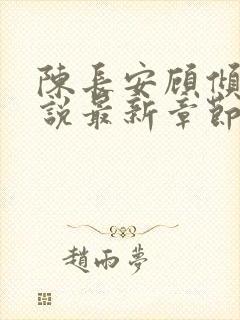 陳長安顧傾
說最新章節
趙雨夢